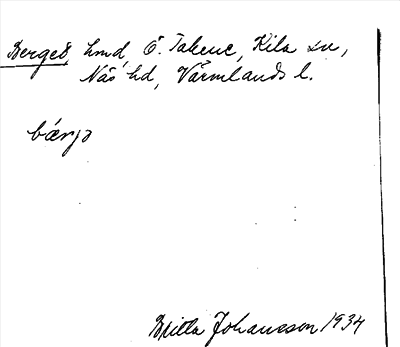 Berget, hmd, Ö. Takene, Kila sn,
Näs hd, Värmlands l.
bærjə
Britta Johansson 1934